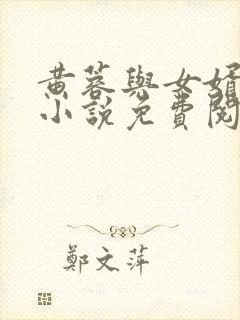 黄蓉與女婿
小說免費閱
鄭文萍